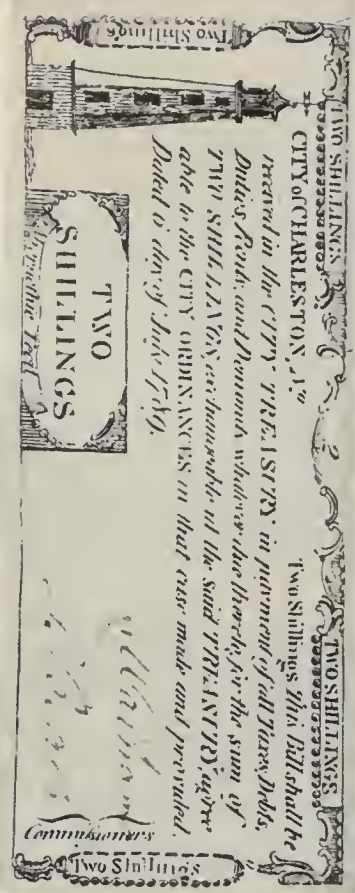 TWO SHILLINGS
TWO SHILLINGS
Two Shillings
CITY of CHARLESTON, No
Two Shillings This Bill shall be
received in the CITY TREASURY in payment of all Taxes, Debts,
Duties, Rents, and Demands whatever due thereto, for the sum of
TWO SHILLINGS, exchangeable at the said TREASURY agree-
able to the CITY ORDINANCES in that case made and provided.
Dated 6 day of July 1789.
TWO
SHILLINGS
Commissioners
Two Shillings